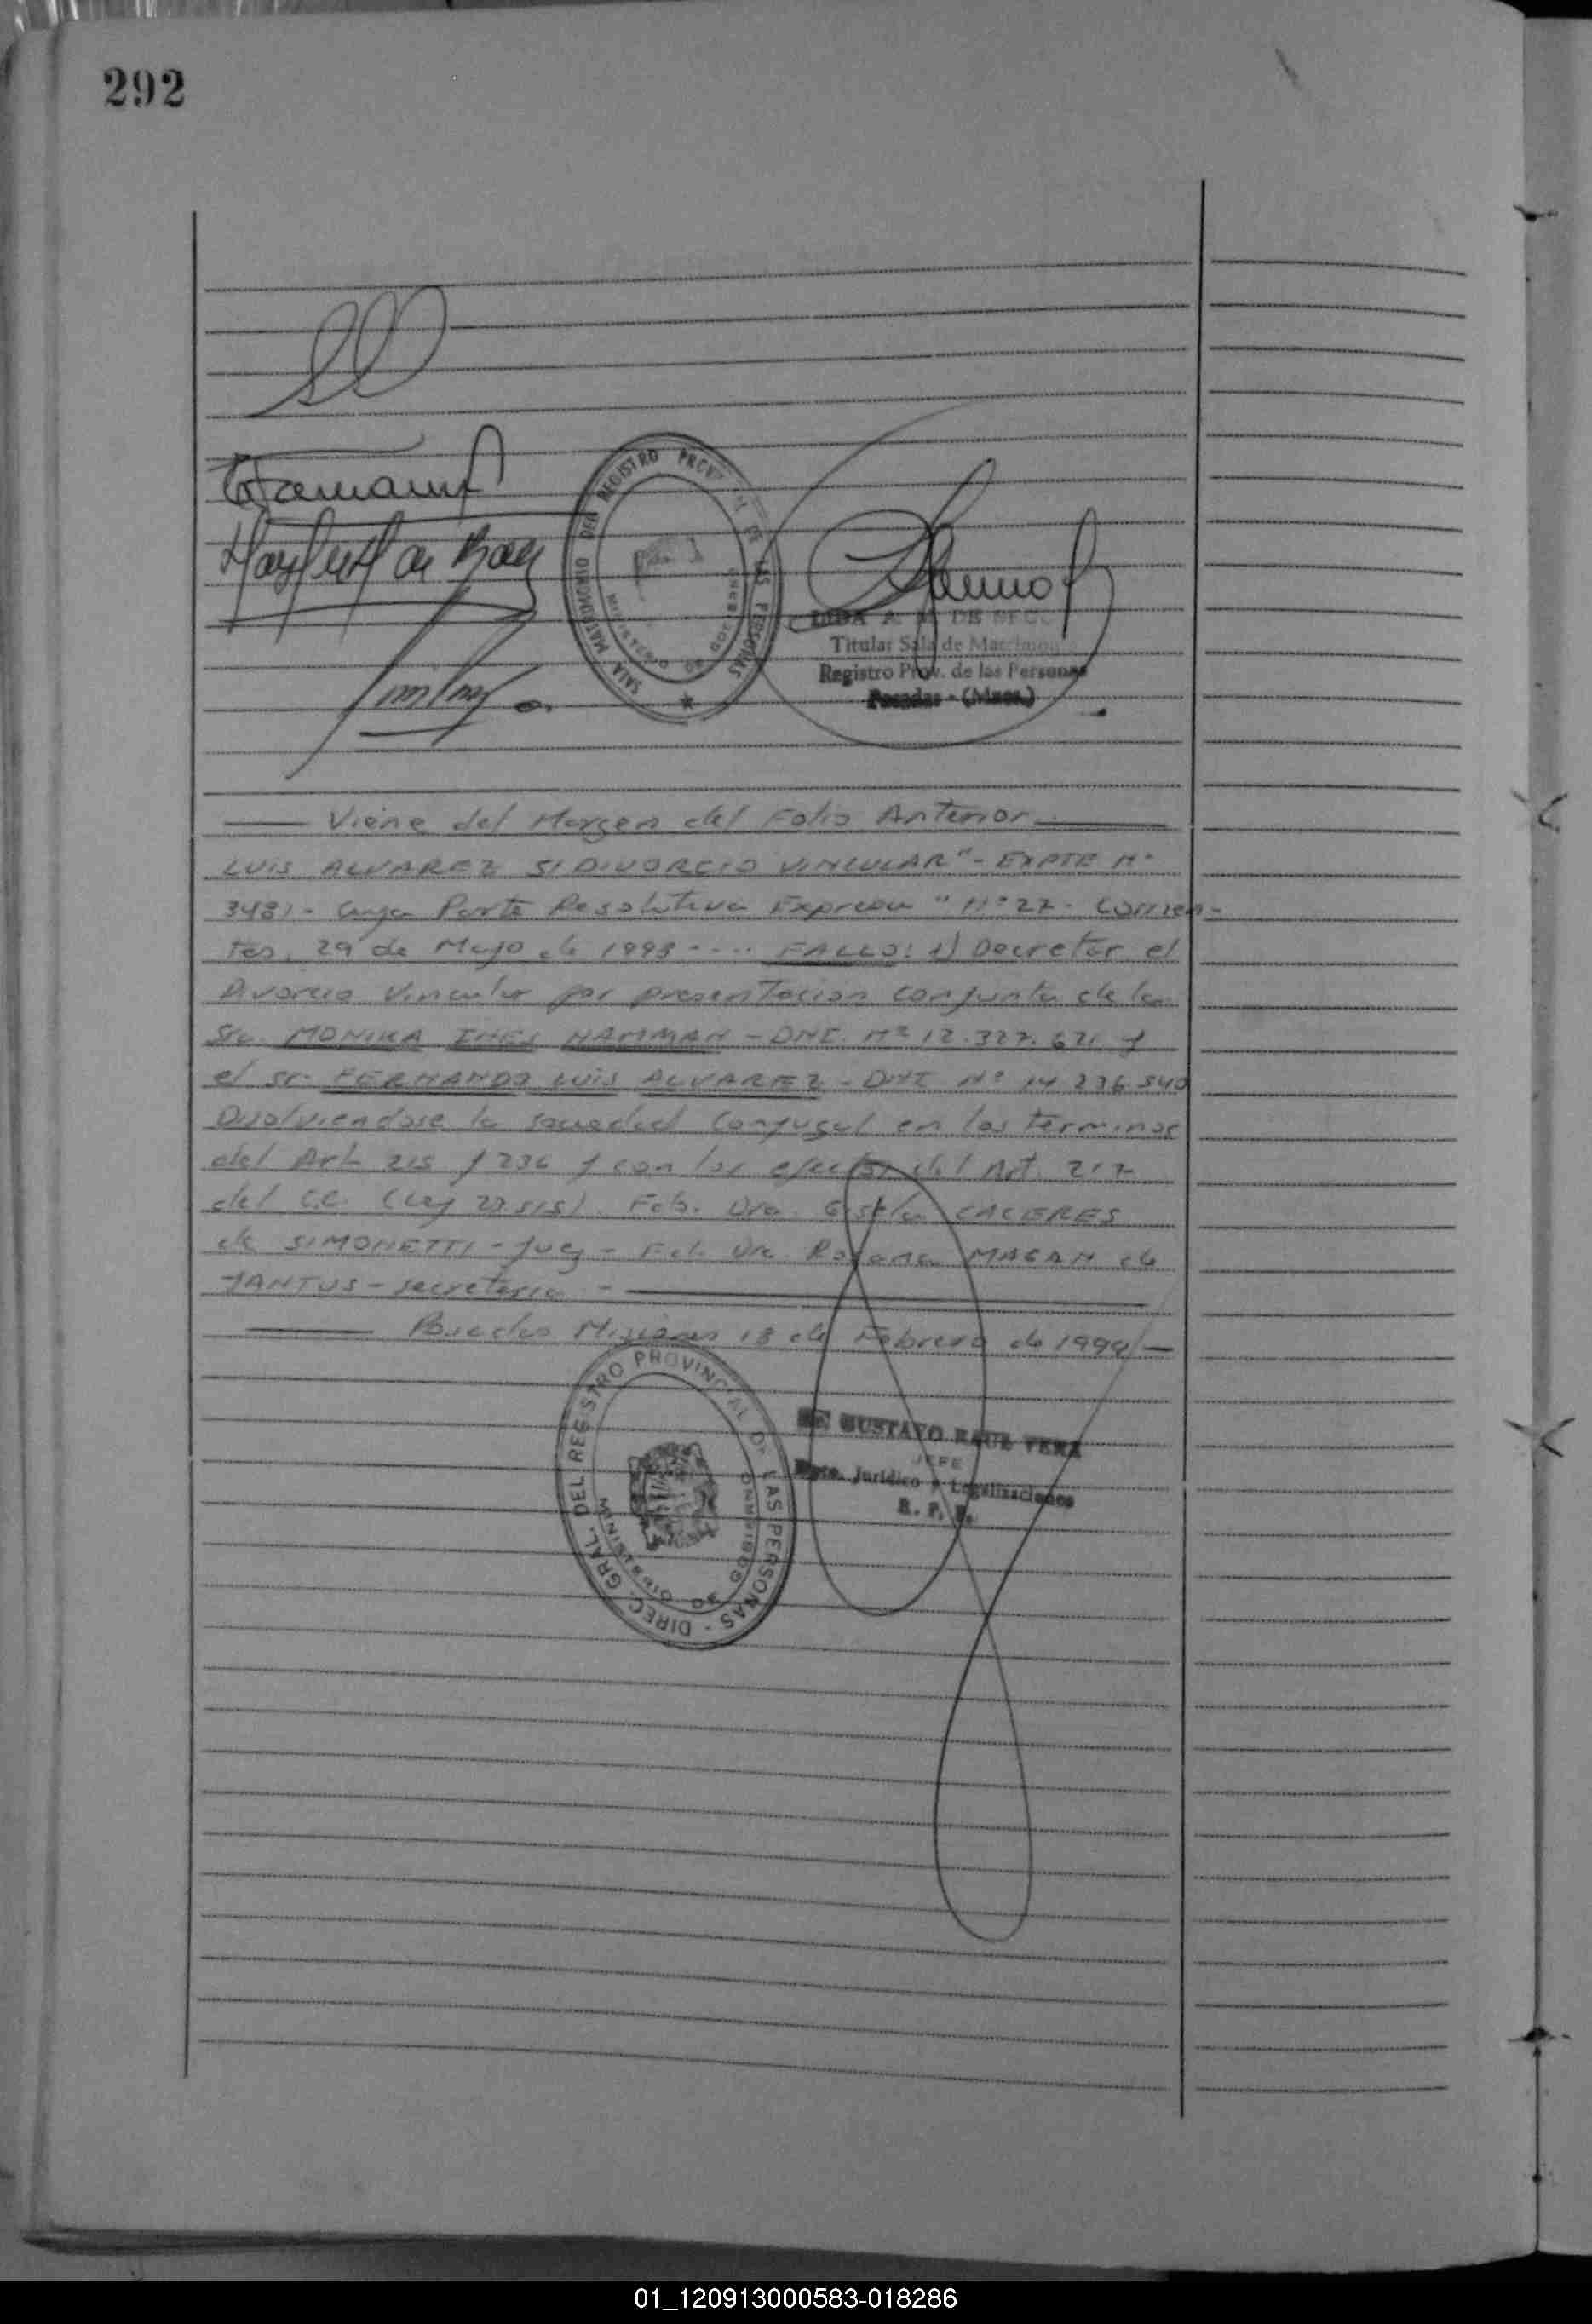 292
SALA MATRIMONIO DEL REGISTRO PROV DE LAS PERSONAS
MINISTERIO DE GOBIERNO
Titular Sala de Matrimon
Registro Prov. de las Personas
Posadas - (Mnes.)
Viene del Margen del Folio Anterior
LUIS ALVAREZ S/ DIVORCIO VINCULAR" - EXPTE Nº
3481 - Cuya Parte Resolutiva Expresa "Nº 27 - Corrien-
tes, 29 de Mayo de 1998 .... FALLO: 1) Decretar el
Divorcio Vincular por presentacion conjunta de la
Sra. MONIKA INES HAMMAN - DNI. Nº 12.327.621 y
el sr. FERNANDO LUIS ALVAREZ - DNI Nº 14.236.540
Disolviendose la sociedad Conyugal en los terminos
del Art 215 y 236 y con los efectos del Art. 217
del C.C. (Ley 23.515). Fdo. Dra. Gisela CACERES
de SIMONETTI - Juez - Fdo. Dra. Rosana MAGAN de
JANTUS - secretaria -
Posadas Misiones 18 de Febrero de 1999 -
DIREC. GRAL. DEL REGISTRO PROVINCIAL DE LAS PERSONAS -
MINISTERIO DE GOBIERNO
GUSTAVO RAUL VERA
JEFE
Dpto. Jurídico y Legalizaciones
R. P. P.
01_120913000583-018286